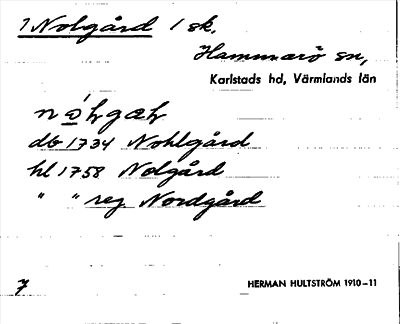 1 Nolgård 1 sk.
Hammarö sn,
Karlstads hd, Värmlands län
nólgæl
db 1734 Nohlgård
hl 1758 Nolgård
" " reg Nordgård
7
HERMAN HULTSTRÖM 1910-11